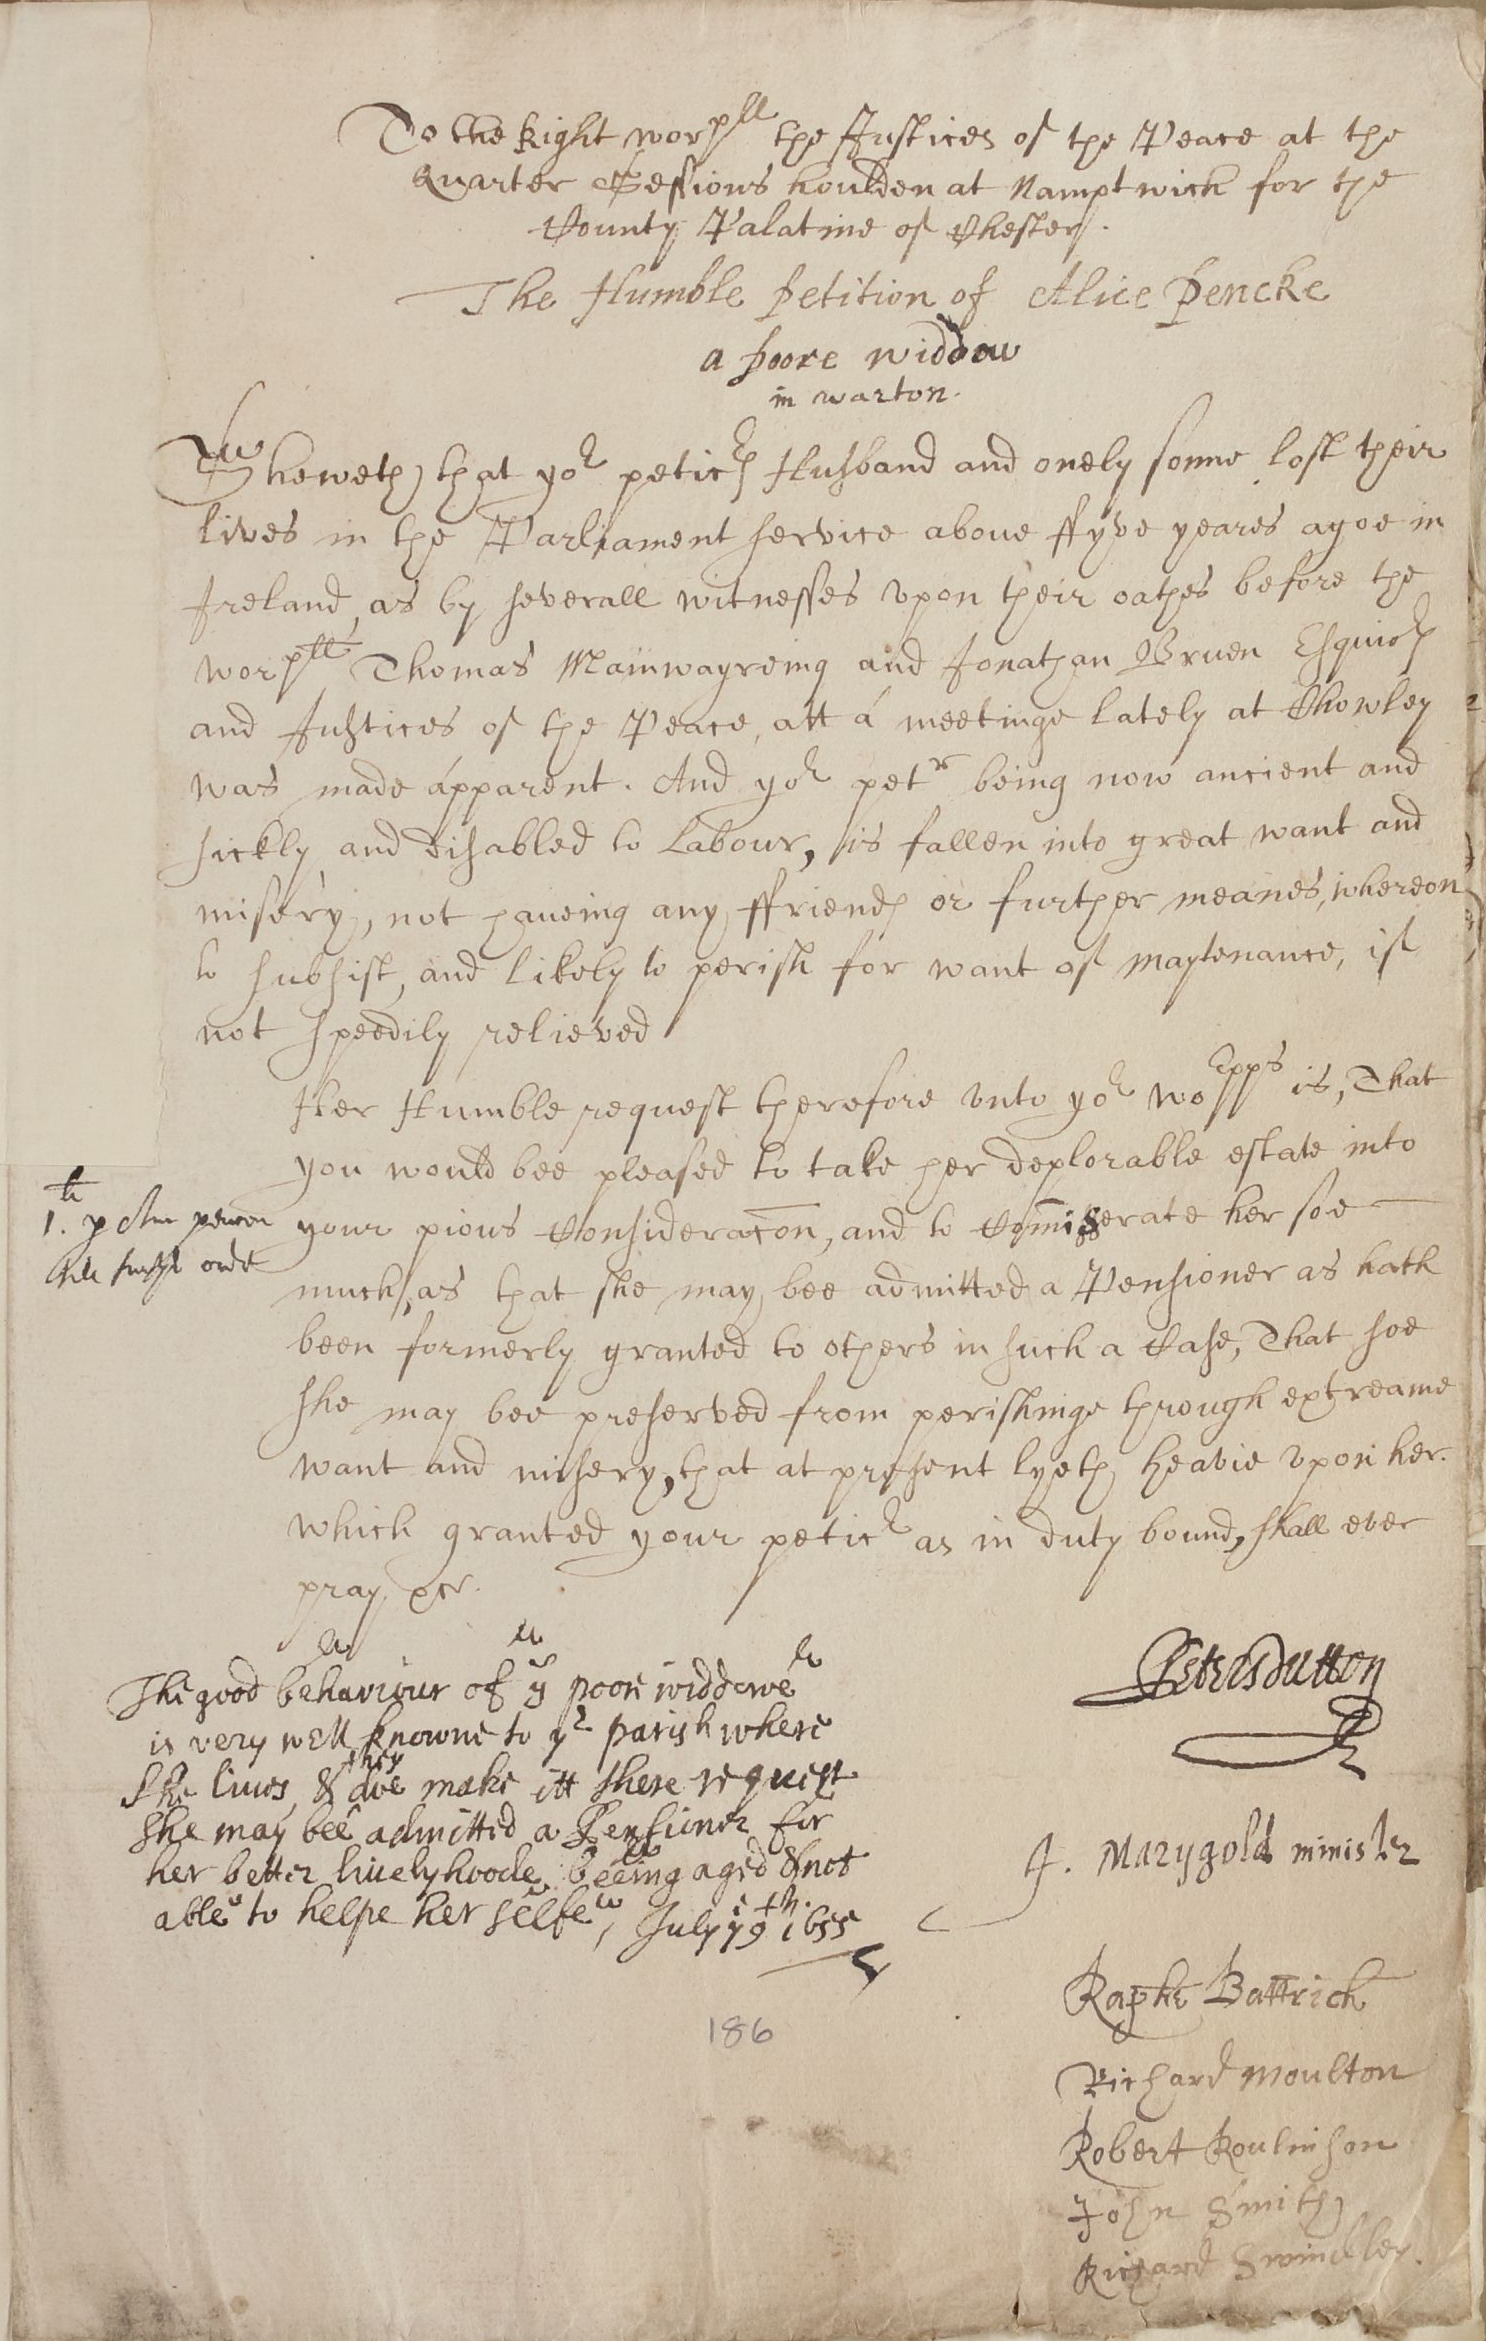 To the Right worpll the Justices of the Peace at the
Quarter Sessions houlden at Namptwich for the
County Palatine of Chester.
The Humble petition of Alice Pencke
a poore widdow
in warton.
Sheweth that yor peticrs Husband and onely sonne lost their
lives in the Parliament service above ffyve yeares agoe in
Ireland, as by severall witnesses vpon their oathes before the
worpll Thomas Mainwayreing and Jonathan Bruen Esquires
and Justices of the Peace, att a meetinge lately at Chowley
was made apparent. And yor petr being now ancient and
sickly and disabled to Labour, is fallen into great want and
misery, not haueing any ffriends or further meanes, whereon
to subsist, and likely to perish for want of maytenance, if
not speedily relieved
Her Humble request therefore vnto yor worpps is, That
you would bee pleased to take her deplorable estate into
your pious Consideracon, and to Comiserate her soe
much, as that she may bee admitted a Pensioner as hath
been formerly granted to others in such a Case, That soe
she may bee preserved from perishinge through extreame
want and misery, that at present lyeth heavie vpon her.
which granted your peticr as in duty bound, shall ever
pray &c.
li
1. p Ann
order
The good behaviour of ys poore widdowe
is very well knowne to yr parish where
she liues, & they doe make itt there request
she may bee admitted a Pensioner for
her better liuelyhoode, beeing aged & not
able to helpe her selfe, July ye 9th. 1655
Peter Dutton
J. Marygold minister
Raphe Battrich
Richard Moulton
Robert Roulinson
John Smith
Richard Swindley.
186